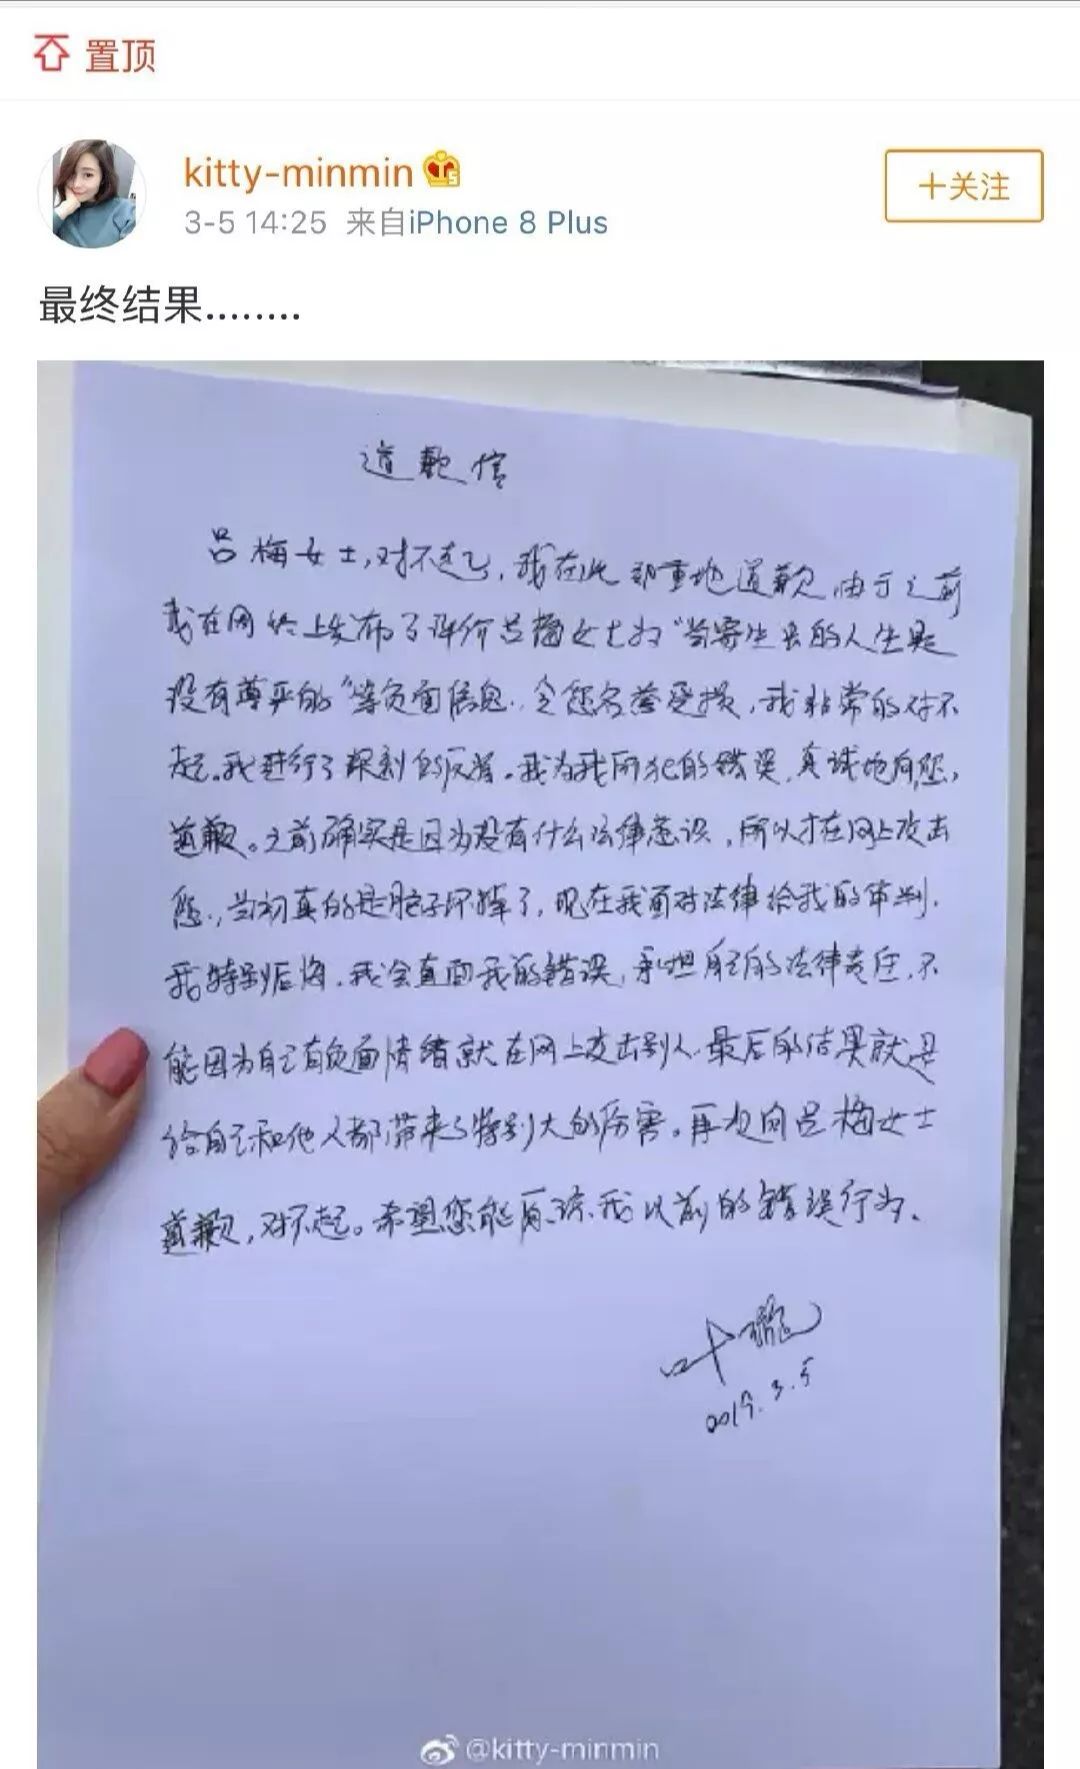 置顶
kitty-minmin
3-5 14:25 来自iPhone 8 Plus
+关注
最终结果........
道歉信
吕梅女士,对不起,我在此郑重地道歉,由于之前
我在网络上发布了评价吕梅女士为“当寄生虫的人生是
没有尊严的“等负面信息.令您名誉受损,我非常的对不
起.我进行了深刻的反省.我为我所犯的错误,真诚地向您,
道歉。之前确实是因为没有什么法律意识,所以才在网上攻击
您.,当初真的是脑子坏掉了,现在我面对法律给我的审判.
我特别后悔.我会直面我的错误,承担自己的法律责任,不
能因为自己有负面情绪就在网上攻击别人.最后的结果就是
给自己和他人都带来了特别大的厉害。再次向吕梅女士
道歉,对不起。希望您能原谅我以前的错误行为.
叶璇
2019.3.5
@kitty-minmin